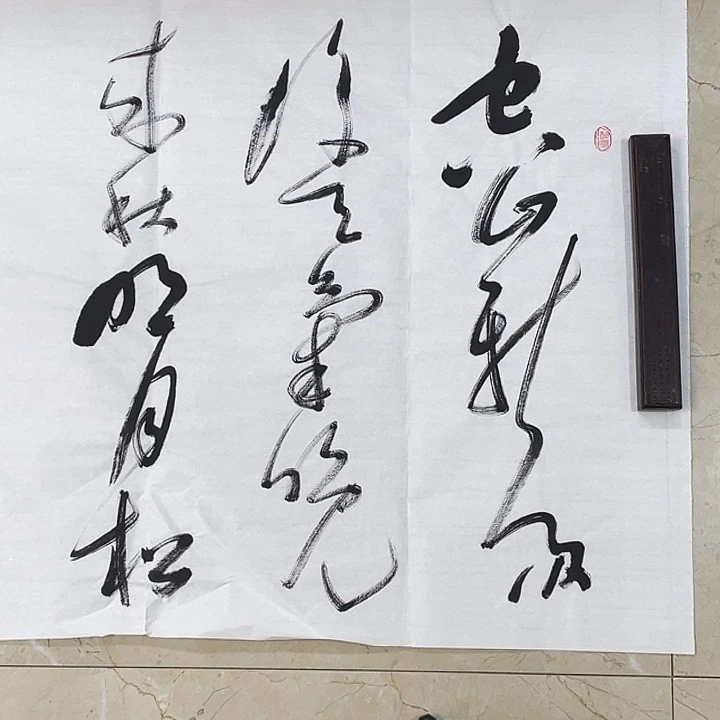 空山新雨
后天气晚
来秋明月松